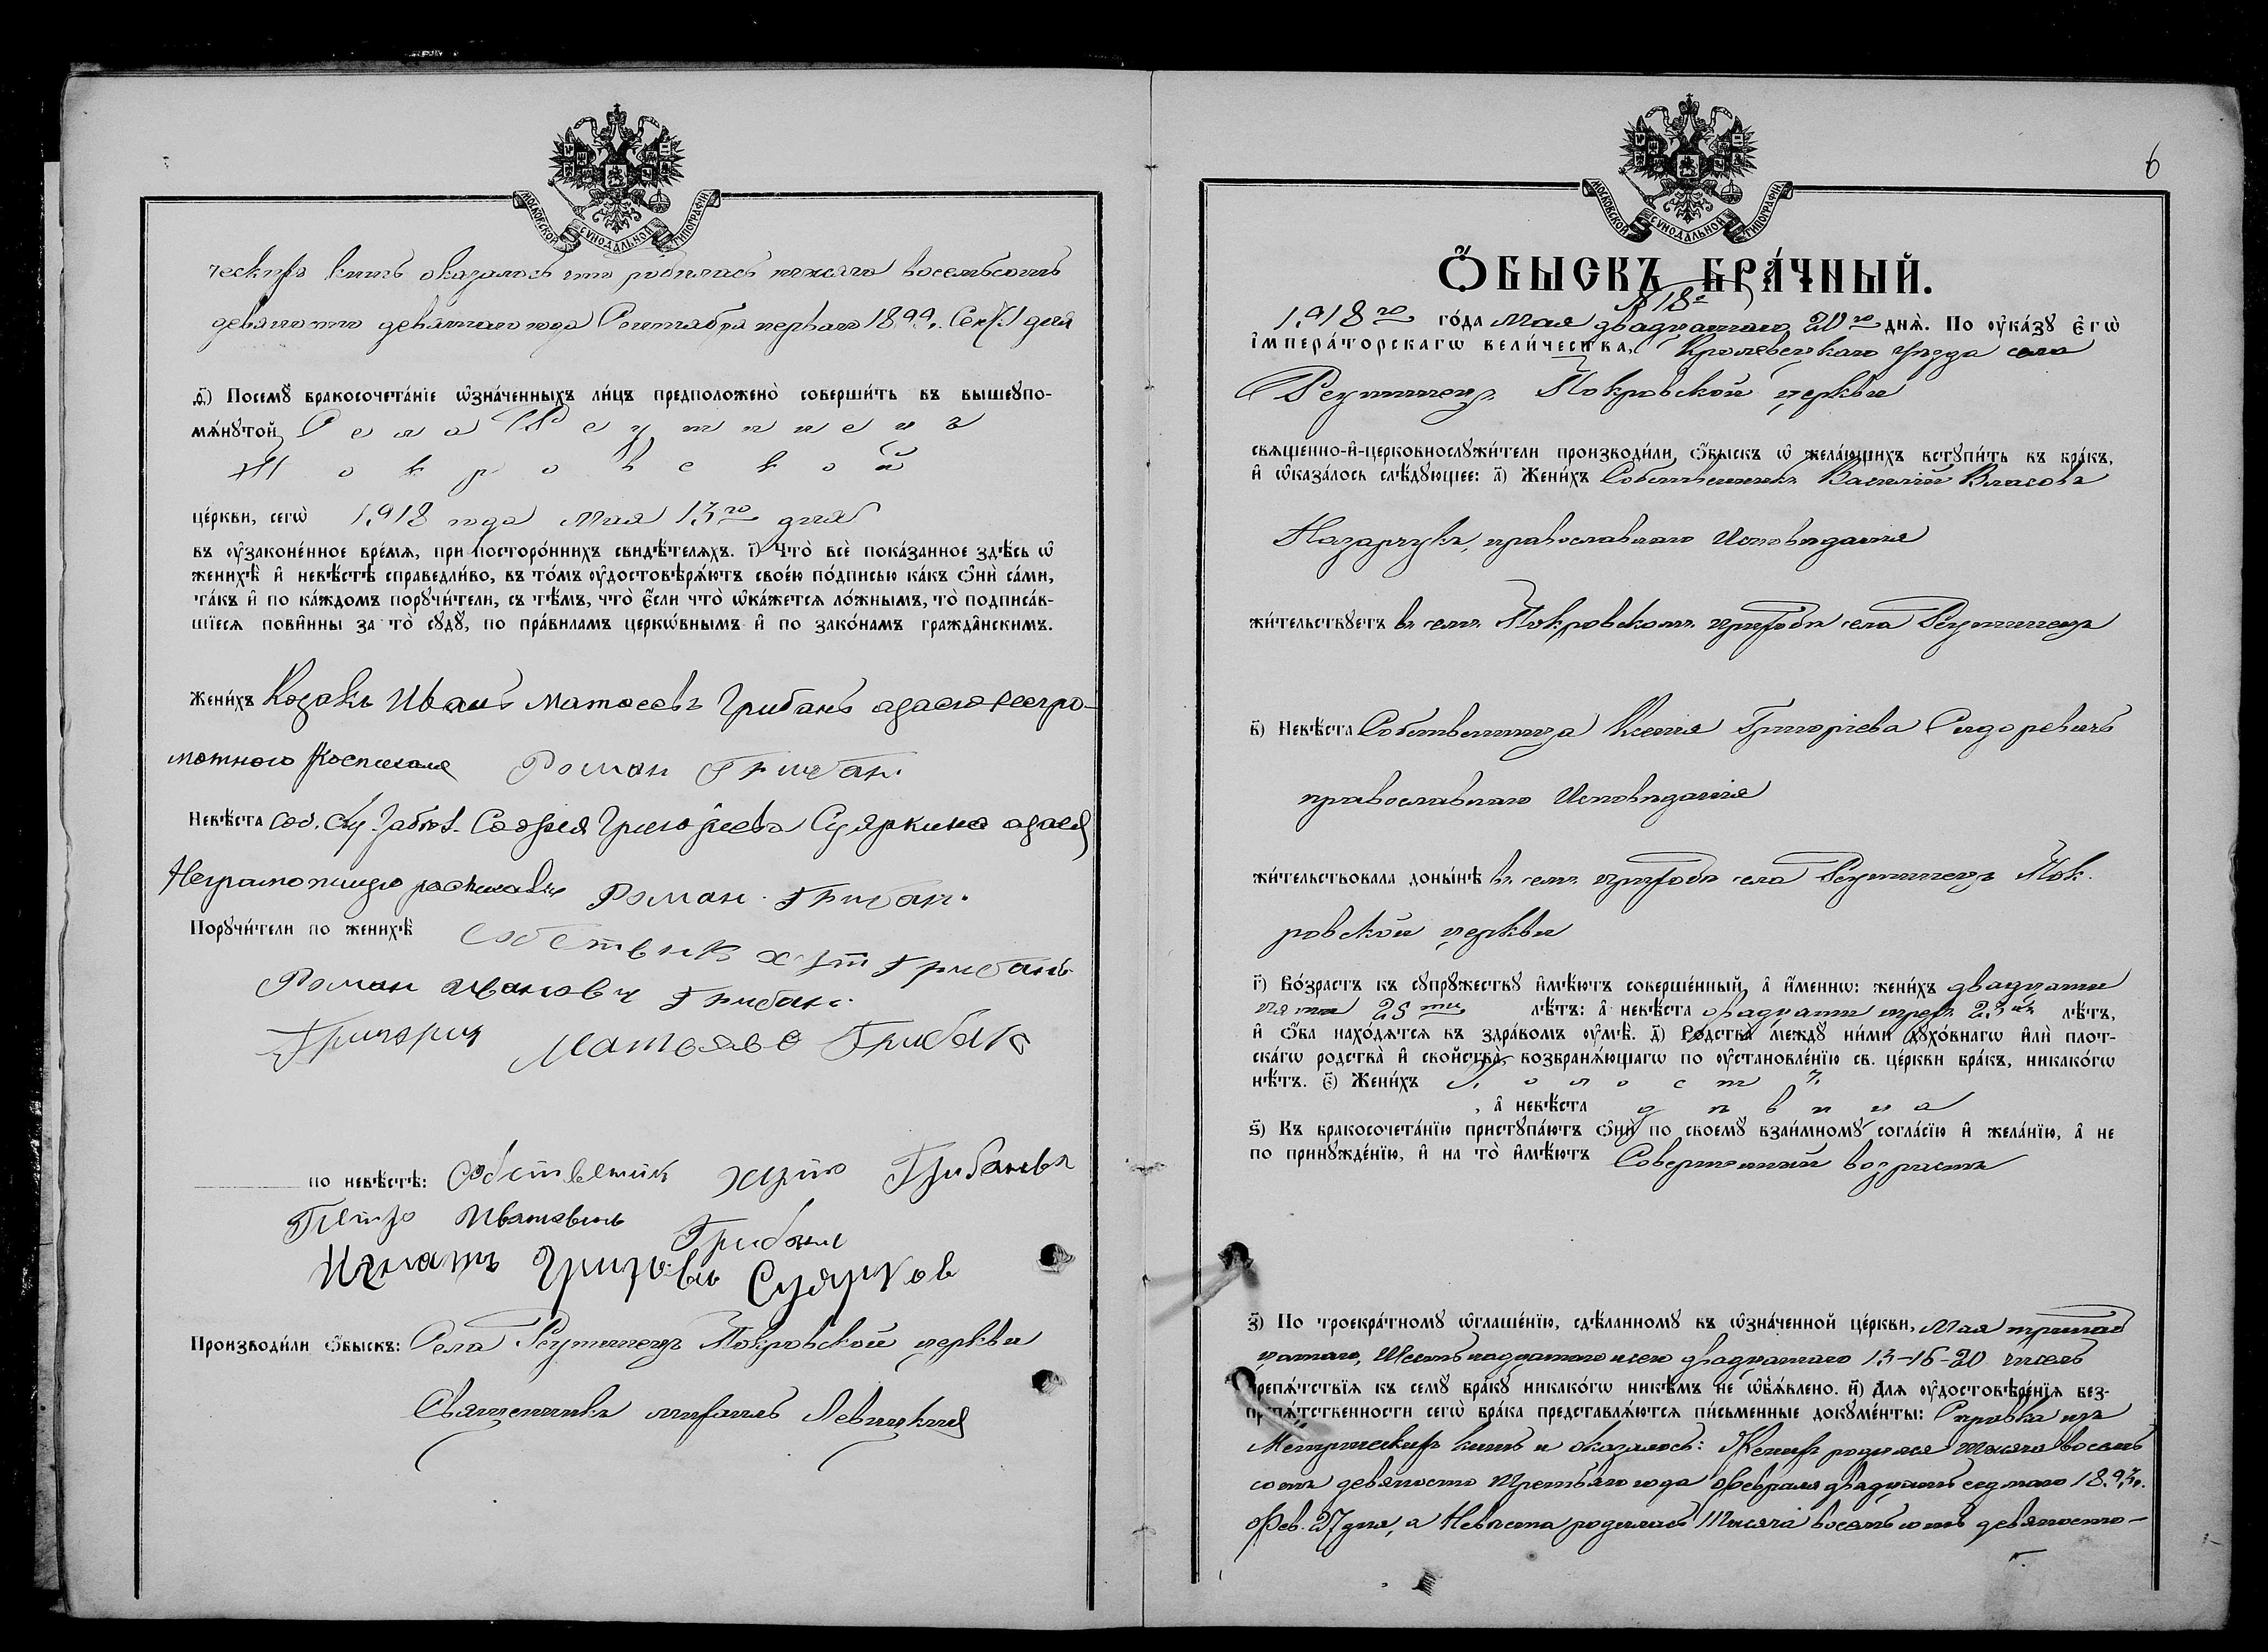 МОСКОВСКОЙ СУНОДАЛЬНОЙ ТИПОГРАФІИ
ческихъ книгъ оказалось что родилась тысяча восемьсотъ
девяносто девятаго года Сентября перваго 1899 г. Сен. 1 дня
ѳ҃) Посемꙋ̀ бракосочета́нїе ѡ҆зна́ченныхъ ли́цъ предположено̀ соверши́ть въ вышеꙋпо-
мѧ́нꙋтой Села Реутинецъ
Покровской
це́ркви, сегѡ̀ 1918 года Мая 13го дня
въ ᲂу҆законе́нное вре́мѧ, при посторо́ннихъ свидѣ́телѧхъ. і҃) Что̀ всѐ пока́занное здѣ́сь ѡ҆
женихѣ̀ и҆ невѣ́стѣ справедли́во, въ то́мъ ᲂу҆достовѣрѧ́ютъ свое́ю по́дписью ка́къ ѻ҆нѝ са́ми,
та́къ и҆ по ка́ждомъ порꙋчи́тели, съ тѣ́мъ, что̀ є҆́сли что̀ ѡ҆ка́жетсѧ ло́жнымъ, то̀ подписа́в-
шїесѧ пови́нны за то̀ сꙋдꙋ̀, по пра́виламъ церкѡ́внымъ и҆ по зако́намъ гражда́нскимъ.
Жени́хъ Козакъ Иванъ Матвеевъ Грибанъ а за его неегра-
мотного Росписался Роман Грибан.
Невѣ́ста София Григориева Суяркина а за ея
Неграмотную росписался Роман Грибан.
Порꙋчи́тели по женихѣ̀ Собствник хут Грибань
Роман Иванович Грибан.
Григорий Матвяво Грибанъ
по невѣ́стѣ: Собственик хутю Грибанья
Петро Ивановичь Грибань
Игнатъ Григо.вь Суярков
Производи́ли ѻ҆́быскъ: Села Реутинецъ Покровской церкви
Священникъ Михаилъ Левицкий
МОСКОВСКОЙ СУНОДАЛЬНОЙ ТИПОГРАФІИ
6
Ѻ҆́БЫСКЪ БРА́ЧНЫЙ.
№ 18
1918го го́да Мая двадцатаго 20го днѧ̀. По ᲂу҆ка́зꙋ є҆гѡ̀
і҆мпера́торскагѡ вели́чества, Кролевецкаго уѣзда села
Реутинецъ Покровской церкви
свѧще́нно-и҆-церковнослꙋжи́тели производи́ли ѻ҆́быскъ ѡ҆ жела́ющихъ встꙋпи́ть въ бра́къ,
и҆ ѡ҆каза́лось слѣ́дꙋющее: а҃) Жени́хъ Собственникъ Василій Власовъ
Назарчукъ, православнаго Исповѣданія
жи́тельствꙋетъ въ селѣ Покровскомъ приходѣ села Реутинецъ
в҃) Невѣ́ста Собственница Ксенія Григоріева Сидоревичъ
православнаго Исповѣданія
жи́тельствовала доны́нѣ въ селѣ приходѣ села Реутинецъ Пок.
ровской церкви
г҃) Во́зрастъ къ сꙋпрꙋ́жествꙋ и҆мѣ́ютъ соверше́нный, а҆ и҆́меннѡ: жени́хъ двадцати
пяти 25ти лѣ́тъ: а҆ невѣ́ста двадцати трехъ 23хъ лѣ́тъ,
и҆ ѻ҆́ба нахо́дѧтсѧ въ здра́вомъ ᲂу҆мѣ̀. д҃) Родства̀ междꙋ̀ ни́ми дꙋхо́внагѡ и҆лѝ плот-
ска́гѡ родства̀ и҆ сво́йства̀, возбранѧ́ющагѡ по ᲂу҆становле́нїю св. це́ркви бра́къ, никако́гѡ
нѣ́тъ. є҃) Жени́хъ Холостъ
, а҆ невѣ́ста дѣвица
ѕ҃) Къ бракосочета́нїю пристꙋпа́ютъ ѻ҆нѝ по своемꙋ̀ взаи́мномꙋ согла́сїю и҆ жела́нїю, а҆ не
по принꙋжде́нїю, и҆ на то̀ и҆мѣ́ютъ Совершенный возрастъ
з҃) По троекра́тномꙋ ѡ҆глаше́нїю, сдѣ́ланномꙋ въ ѡ҆зна́ченной це́ркви, Мая тринад
цатаго, Шестьнадцатого и двадцатаго 13-16-20 чиселъ
препѧ́тствїѧ къ семꙋ̀ бра́кꙋ никако́гѡ никѣ́мъ не ѡ҆б̾ѧ́влено. и҃) Для ᲂу҆достовѣре́нїѧ без-
препѧ́тственности сегѡ̀ бра́ка представлѧ́ютсѧ пи́сьменные докꙋме́нты: Справка изъ
Метрическихъ книгъ и оказалось: Женихъ родился тысяча восемь
сотъ девяносто третьяго года Февраля двадцать седмаго 1893 г.
Фев. 27 дня, а Невѣста родилась тысяча восемь сотъ девяносто-